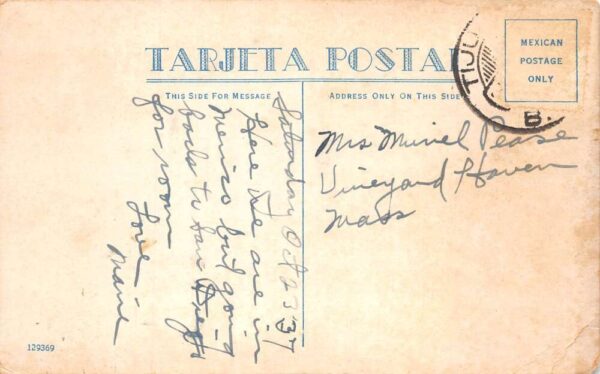 TARJETA POSTAL
THIS SIDE FOR MESSAGE
ADDRESS ONLY ON THIS SIDE
MEXICAN
POSTAGE
ONLY
TIJU
B.
Saturday Oct 23 37
Here we are in
Mexico but going
back to San Diego
for room
Love
Marie
Mrs Muriel Pease
Vineyard Haven
Mass
129369